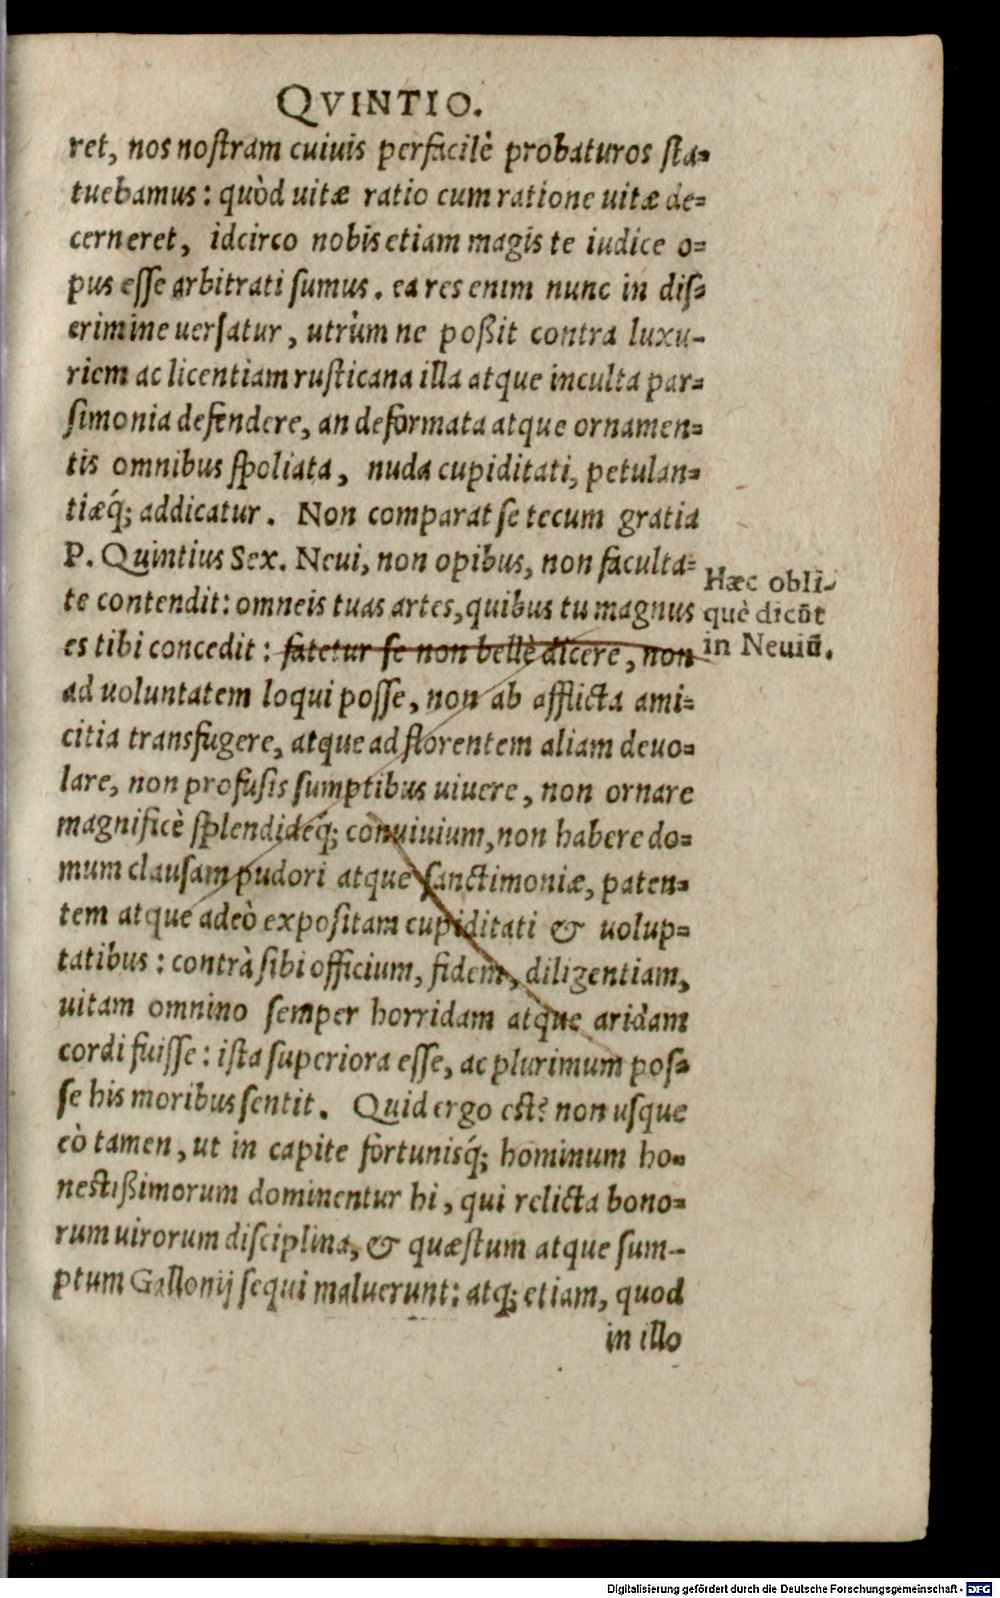 QVINTIO.
ret, nos nostram cuiuis perfacilè probaturos sta-
tuebamus: quòd uitæ ratio cum ratione uitæ de-
cerneret, idcirco nobis etiam magis te iudice o-
pus esse arbitrati sumus. ea res enim nunc in dis-
crimine uersatur, utrùm ne poßit contra luxu-
riem ac licentiam rusticana illa atque inculta par-
simonia defendere, an deformata atque ornamen-
tis omnibus spoliata, nuda cupiditati, petulan-
tiæq́; addicatur. Non comparat se tecum gratia
P. Quintius Sex. Neui, non opibus, non faculta-
te contendit: omneis tuas artes, quibus tu magnus
es tibi concedit: fatetur se non bellè dicere, non
ad uoluntatem loqui posse, non ab afflicta ami-
citia transfugere, atque ad florentem aliam deuo-
lare, non profusis sumptibus uiuere, non ornare
magnificè splendideq́; conuiuium, non habere do-
mum clausam pudori atque sanctimoniæ, paten-
tem atque adeò expositam cupiditati & uolup-
tatibus: contrà sibi officium, fidem, diligentiam,
uitam omnino semper horridam atque aridam
cordi fuisse: ista superiora esse, ac plurimum pos-
se his moribus sentit. Quid ergo est? non usque
eò tamen, ut in capite fortunisq́; hominum ho-
nestißimorum dominentur hi, qui relicta bono-
rum uirorum disciplina, & quæstum atque sum-
ptum Gallonij sequi maluerunt: atq́; etiam, quod
in illo
Hæc obli-
què dicūt
in Neuiū.
Digitalisierung gefördert durch die Deutsche Forschungsgemeinschaft - DFG